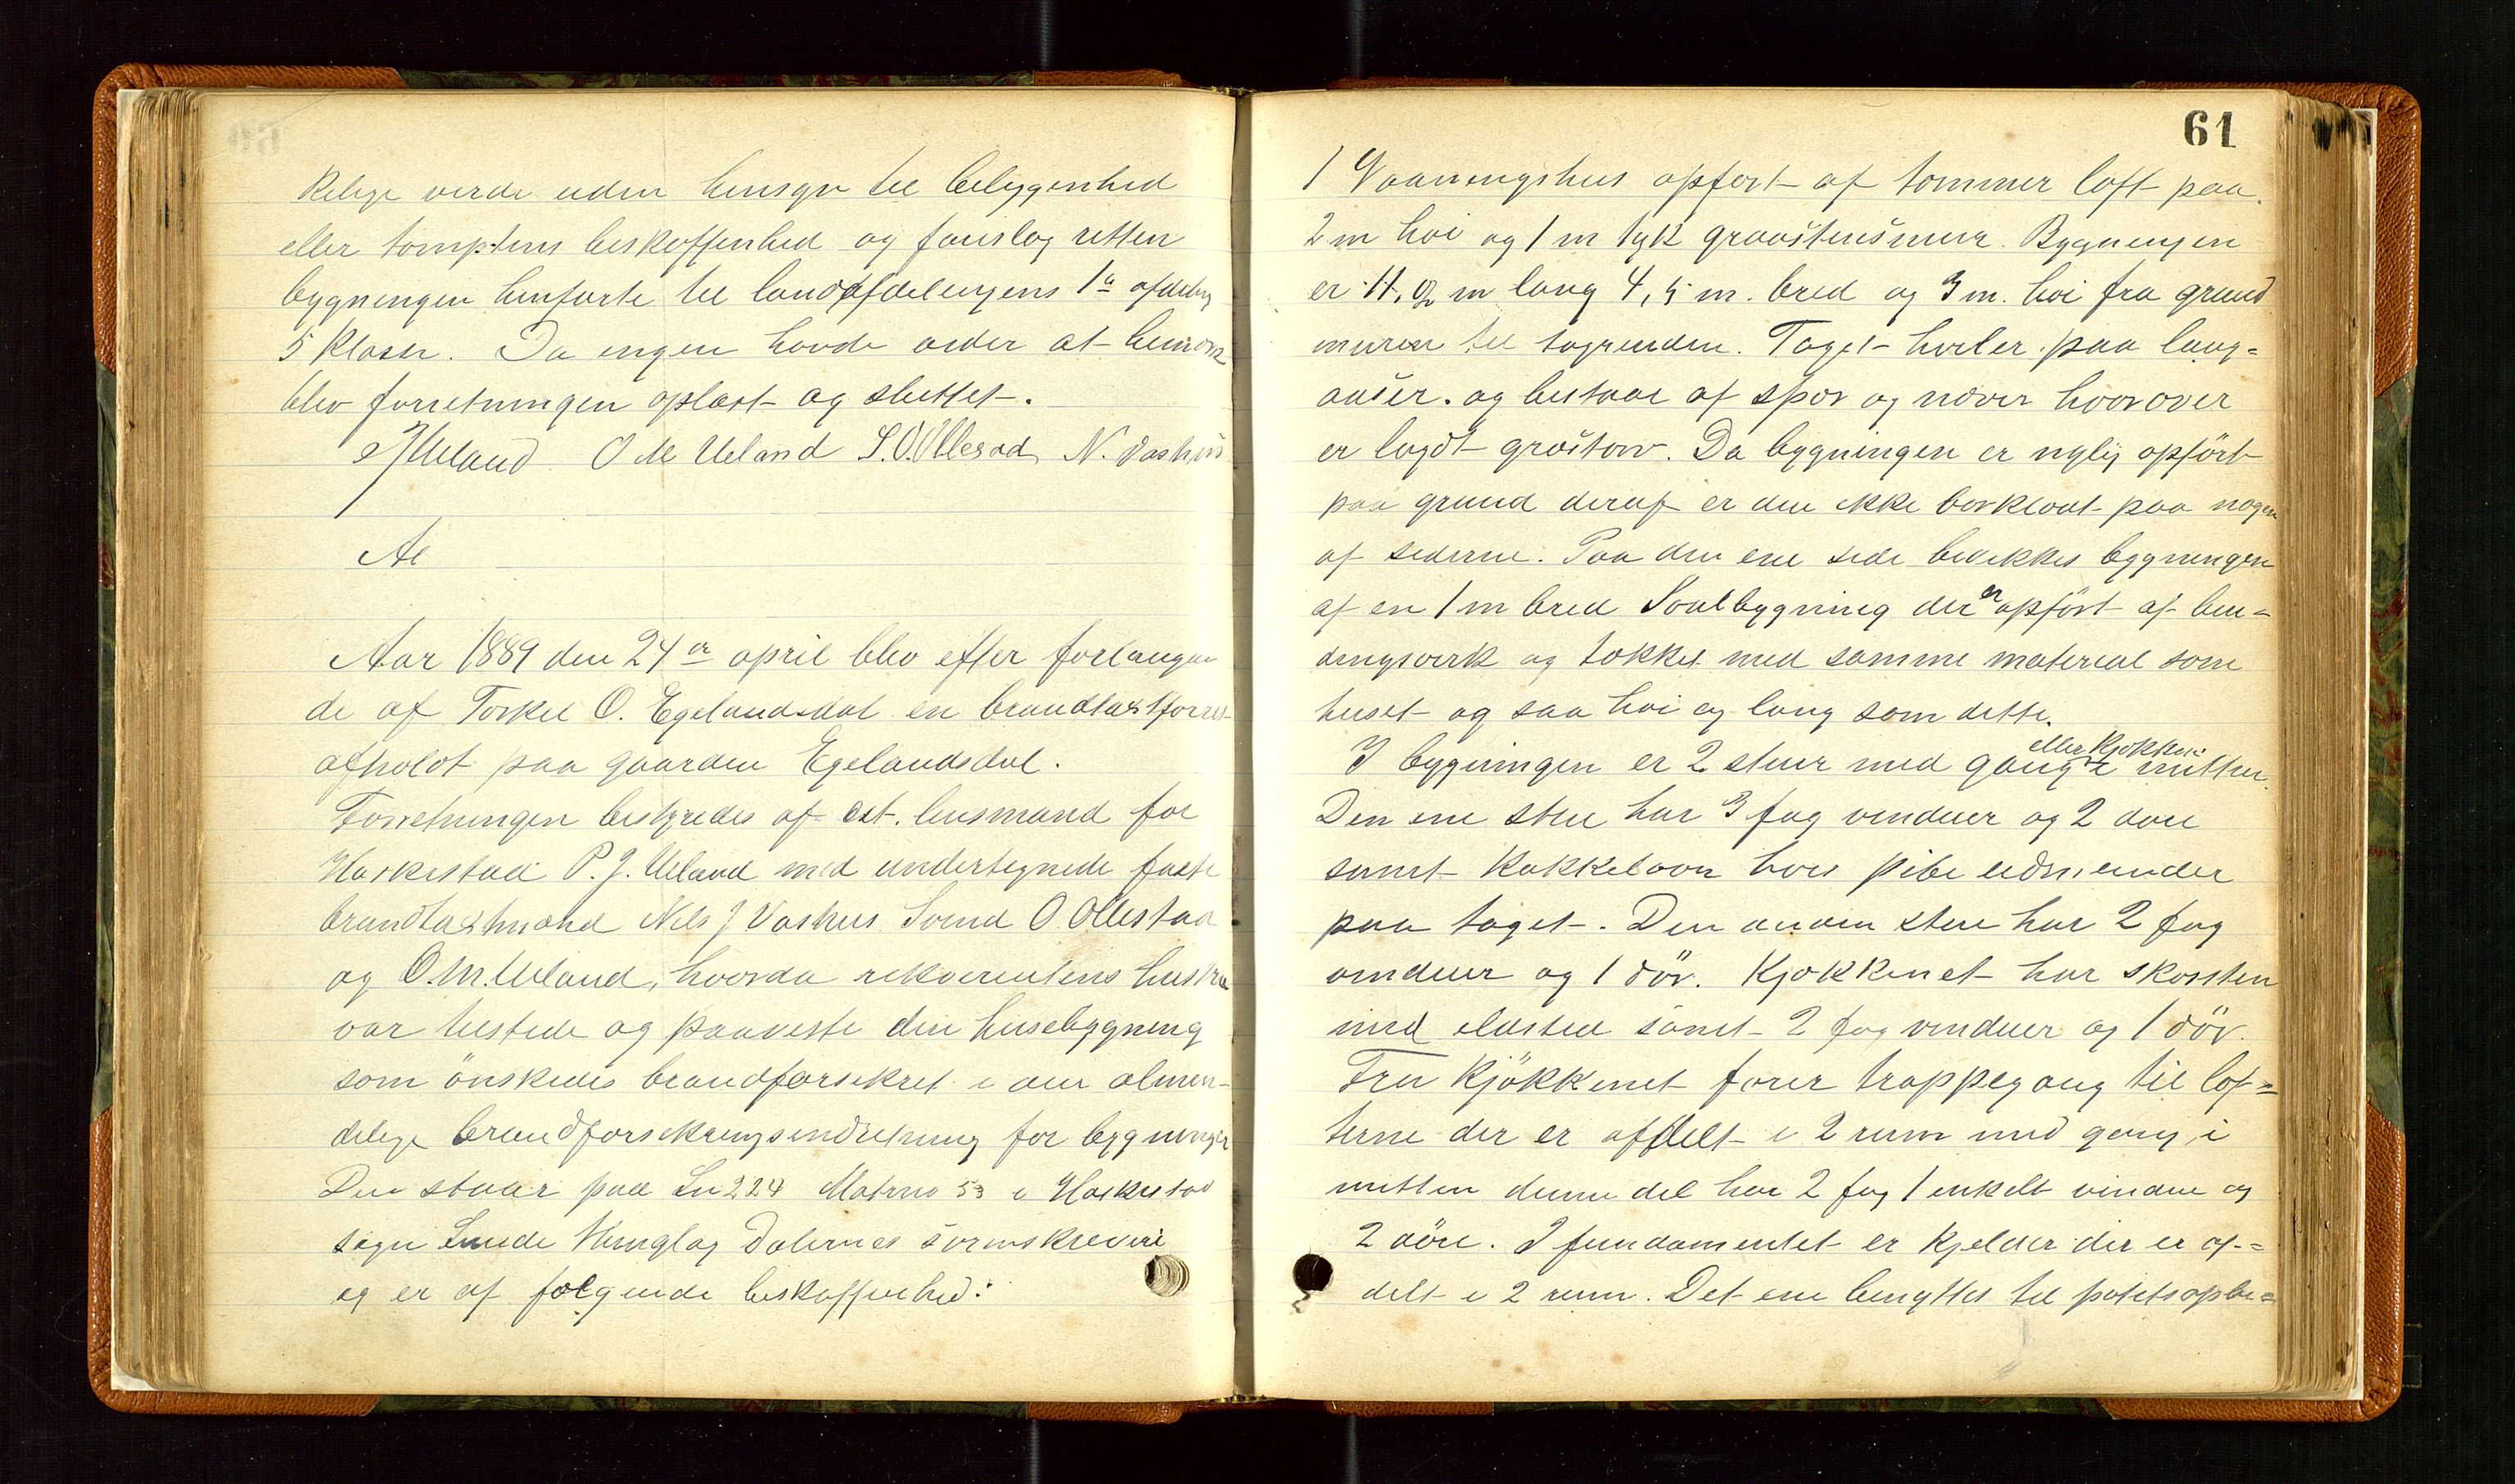 kelige verdi uden hensyn til beliggenhed
eller tomptens beskaffenhed og foreslog retten
bygningen henførte til landafdelingens 1ª afdeling
5 klasse. Da ingen havde vider at bemærk
blev forretningen oplæst og sluttet.
PJUeland O M Ueland S.O.Ollestad N. Vashus
Ae
Aar 1889 den 24er april blev efter forlangen
de af Torkel O. Egelandsdal en brandtaxtforret
afholdt paa gaarden Egelandsdal.
Forretningen bestyredes af cst. lensmand for
Heskestad P. J. Ueland med undertegnede faste
brandtaxtmænd Nils J Vashus Svend O Ollestad
og O.M.Ueland, hvorda rekvirentens hustru
var tilstede og paaviste den husebygning
som ønskedes brandforsikret i den almin-
delige brandforsikringsindretning for bygninger
Den staar paa Ln 224 Matrno 53 i Heskestad
sogn Lunde thinglag Dalernes sorenskriveri
og er af følgende beskaffenhed:
61
1 Vaaningshus opført af tømmer loft paa
2 m høi og 1 m tyk graastensmur. Bygningen
er 11,2 m lang 4,5 m. bred og 3 m. høi fra grund
muren til tagrenden. Taget hviler paa lang=
aaser. og bestaar af spor og næver hvorover
er lagdt græstorv. Da bygningen er nylig opført
paa grund deraf er den ikke bordklædt paa nogen
af siderne. Paa den ene side bedækkes bygningen
af en 1 m bred Svalbygning der er opført af bin=
dingsverk og tækket med samme material som
huset og saa høi og lang som dette.
I bygningen er 2 stuer med gang eller kjøkken i mitten
Den ene stue har 3 fag vinduer og 2 døre
samt kakkelovn hvis pibe udmunder
paa taget. Den anden stue har 2 fag
vinduer og 1 dør. Kjøkkenet har skorsten
med ildsted samt 2 fag vinduer og 1 dør.
Fra kjøkkenet fører trappegang til lof=
terne der er afdelt i 2 rum med gang i
mitten denne del har 2 fag 1 enkelt vindue og
2 døre. I fundamentet er kjelder der er af=
delt i 2 rum. Det ene benyttes til potetsopbe=